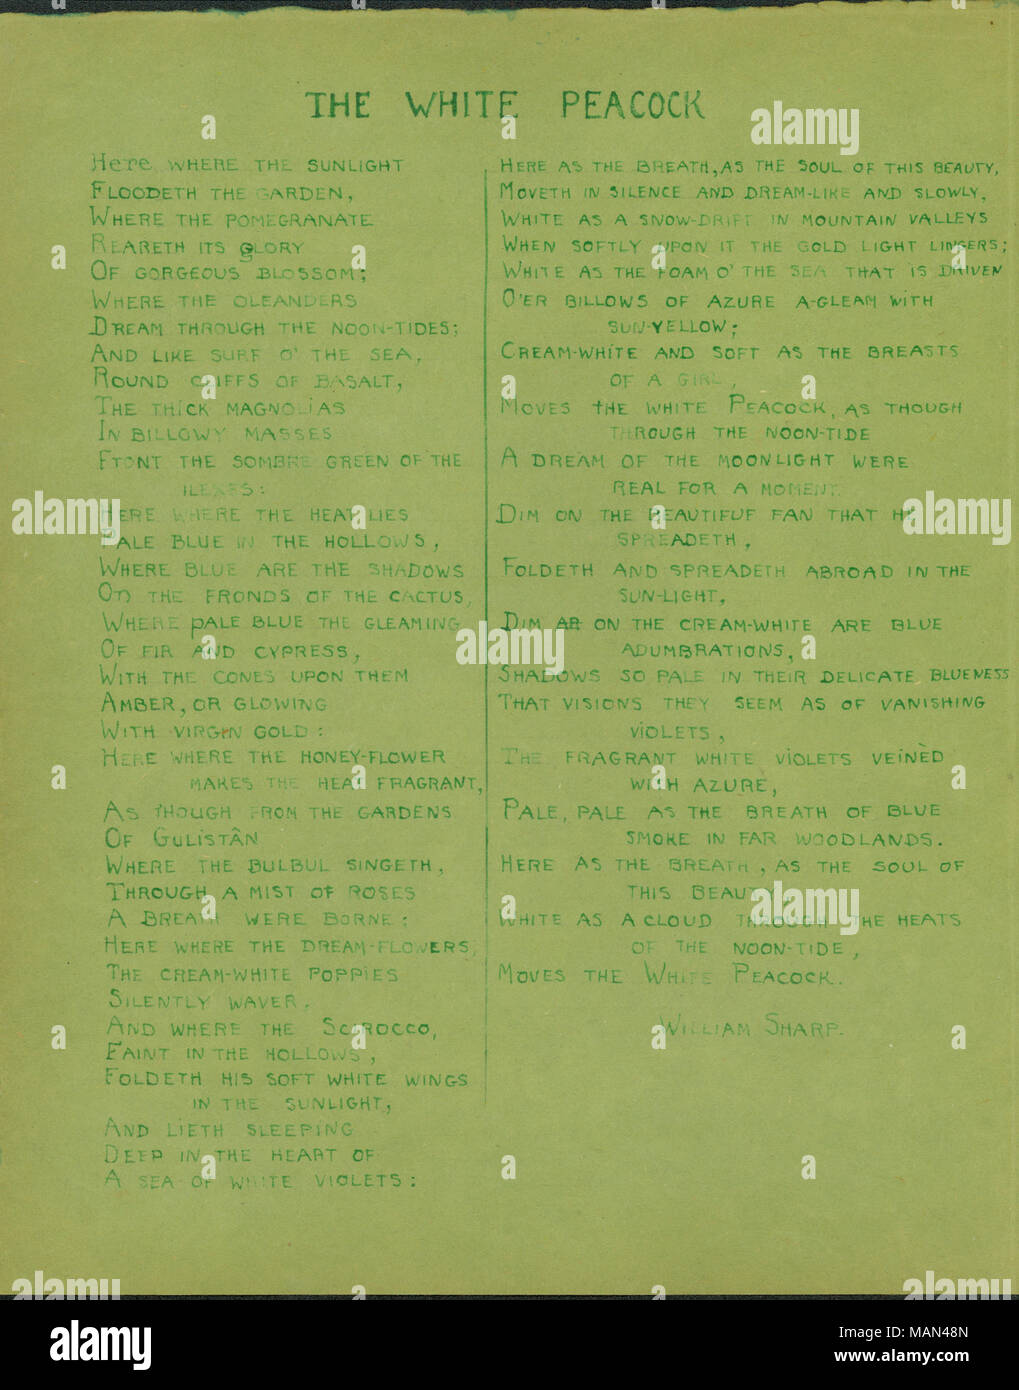 THE WHITE PEACOCK
Here WHERE THE SUNLIGHT
FLOODETH THE GARDEN,
WHERE THE POMEGRANATE
REARETH ITS GLORY
OF GORGEOUS BLOSSOM;
WHERE THE OLEANDERS
DREAM THROUGH THE NOON-TIDES;
AND LIKE SURF O' THE SEA,
ROUND CLIFFS OF BASALT,
THE THICK MAGNOLIAS
IN BILLOWY MASSES
FRONT THE SOMBRE GREEN OF THE
ILEXES:
HERE WHERE THE HEAT LIES
PALE BLUE IN THE HOLLOWS,
WHERE BLUE ARE THE SHADOWS
ON THE FRONDS OF THE CACTUS,
WHERE PALE BLUE THE GLEAMING
OF FIR AND CYPRESS,
WITH THE CONES UPON THEM
AMBER, OR GLOWING
WITH VIRGIN GOLD:
HERE WHERE THE HONEY-FLOWER
MAKES THE HEAT FRAGRANT,
AS THOUGH FROM THE GARDENS
OF GULISTÂN
WHERE THE BULBUL SINGETH,
THROUGH A MIST OF ROSES
A BREATH WERE BORNE:
HERE WHERE THE DREAM-FLOWERS,
THE CREAM-WHITE POPPIES
SILENTLY WAVER.
AND WHERE THE SCIROCCO,
FAINT IN THE HOLLOWS,
FOLDETH HIS SOFT WHITE WINGS
IN THE SUNLIGHT,
AND LIETH SLEEPING
DEEP IN THE HEART OF
A SEA OF WHITE VIOLETS:
HERE AS THE BREATH, AS THE SOUL OF THIS BEAUTY,
MOVETH IN SILENCE AND DREAM-LIKE AND SLOWLY,
WHITE AS A SNOW-DRIFT IN MOUNTAIN VALLEYS
WHEN SOFTLY UPON IT THE GOLD LIGHT LINGERS;
WHITE AS THE FOAM O' THE SEA THAT IS DRIVEN
O'ER BILLOWS OF AZURE A-GLEAM WITH
SUN-YELLOW;
CREAM-WHITE AND SOFT AS THE BREASTS
OF A GIRL,
MOVES THE WHITE PEACOCK, AS THOUGH
THROUGH THE NOON-TIDE
A DREAM OF THE MOONLIGHT WERE
REAL FOR A MOMENT.
DIM ON THE BEAUTIFUF FAN THAT HE
SPREADETH,
FOLDETH AND SPREADETH ABROAD IN THE
SUN-LIGHT,
DIM ON THE CREAM-WHITE ARE BLUE
ADUMBRATIONS,
SHADOWS SO PALE IN THEIR DELICATE BLUENESS
THAT VISIONS THEY SEEM AS OF VANISHING
VIOLETS,
THE FRAGRANT WHITE VIOLETS VEINÈD
WITH AZURE,
PALE, PALE AS THE BREATH OF BLUE
SMOKE IN FAR WOODLANDS.
HERE AS THE BREATH, AS THE SOUL OF
THIS BEAUTY,
WHITE AS A CLOUD THROUGH THE HEATS
OF THE NOON-TIDE,
MOVES THE WHITE PEACOCK.
WILLIAM SHARP.
alamy
Image ID: MAN48N
www.alamy.com